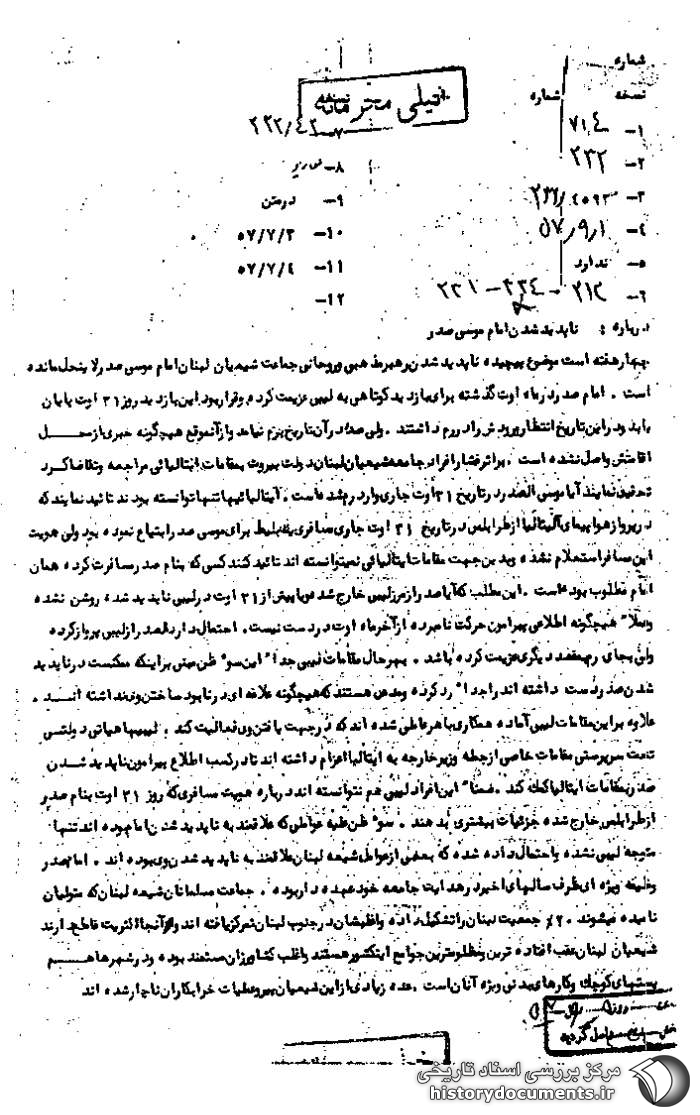 شماره
نسخه شماره
خیلی محرمانه
۱- ۷۱٤
۲- ۲۳۲
۴- ۵۷/۹/۱
۵- ندارد
۹- درمتن
۱۰- ۵۷/۷/۳
۱۱- ۵۷/۷/٤
۱۲-
درباره : ناپدید شدن امام موسی صدر
چهار هفته است موضوع پیچیده ناپدید شدن رهبر مذهبی وروحانی جماعت شیعیان لبنان امام موسی صدر لاینحل مانده
است . امام صدر در ماه اوت گذشته برای بازدید کوتاهی به لیبی عزیمت کرده وقرار بود این بازدید روز ۳۱ اوت پایان
یابد ودر این تاریخ انتظار ورودش را در رم داشتند . ولی صدر در آن تاریخ برم نیامد واز آنموقع هیچگونه خبری از محل
اقامتش واصل نشده است . براثر فشار افراد جامعه شیعیان لبنان دولت بیروت بمقامات ایتالیائی مراجعه وتقاضا کرد
تحقیق نمایند آیا موسی الصدر در تاریخ ۳۱ اوت جاری وارد رم شده است . ایتالیائیها تنها توانسته بودند تائید نمایند که
در پرواز هواپیمای آلیتالیا از طرابلس در تاریخ ۳۱ اوت جاری مسافری بلیط برای موسی صدر ابتیاع نموده بود ولی هویت
این مسافر استعلام نشده وبدین جهت مقامات ایتالیائی نمیتوانسته اند تائید کنند کسی که بنام صدر مسافرت کرده همان
امام مطلوب بوده است . این مطلب که آیا صدر از مرز لیبی خارج شده ویا پیش از ۳۱ اوت در لیبی ناپدید شده روشن نشده
وعملا" هیچگونه اطلاعی پیرامون حرکت نامبرده از آخر ماه اوت در دست نیست . احتمال دارد صدر از لیبی پرواز کرده
ولی بجای رم بمقصد دیگری عزیمت کرده باشد . بهر حال مقامات لیبی جدا" این سو" ظن مبنی بر اینکه ممکنست در ناپدید
شدن صدر دست داشته اند را جدا" رد کرده ومدعی هستند که هیچگونه علاقه ای در نابود ساختن وی نداشته انـــد .
علاوه بر این مقامات لیبی آماده همکاری با هر عاملی شده اند که در جهت یافتن وی فعالیت کند . لیبیها هیاتی دولتی
تحت سرپرستی مقامات خاصی از جمله وزیر خارجه به ایتالیا اعزام داشته اند تا در کسب اطلاع پیرامون ناپدید شـدن
صدر بمقامات ایتالیا کمک کند . ضمنا" این افراد لیبی هم نتوانسته اند درباره هویت مسافری که روز ۳۱ اوت بنام صدر
از طرابلس خارج شده جزئیات بیشتری بدهند . سو" ظن علیه عواملی که علاقمند به ناپدید شدن امام بوده اند تنها
متوجه لیبی نشده واحتمال داده شده که بعضی از عوامل شیعه لبنان علاقمند به ناپدید شدن وی بوده اند . امام صدر
وظیفه ویژه ای ظرف سالهای اخیر در هدایت جامعه خود عهده دار بود . جماعت مسلمانان شیعه لبنان که متولیان
نامیده میشوند ۲۰٪ جمعیت لبنان را تشکیل داده واغلبشان در جنوب لبنان تمرکز یافته اند ودر آنجا اکثریت قاطع دارند
شیعیان لبنان عقب افتاده ترین ومظلومترین جوامع اینکشور هستند واغلب کشاورزان مستمند بوده ودر شهرها هـــم
پستهای کوچک وکارهای بدنی ویژه آنان است . عده زیادی از این شیعیان پیرو عملیات خرابکاران ناچار شده اند
حاصل گردید
مرکز بررسی اسناد تاریخی
historydocuments.ir